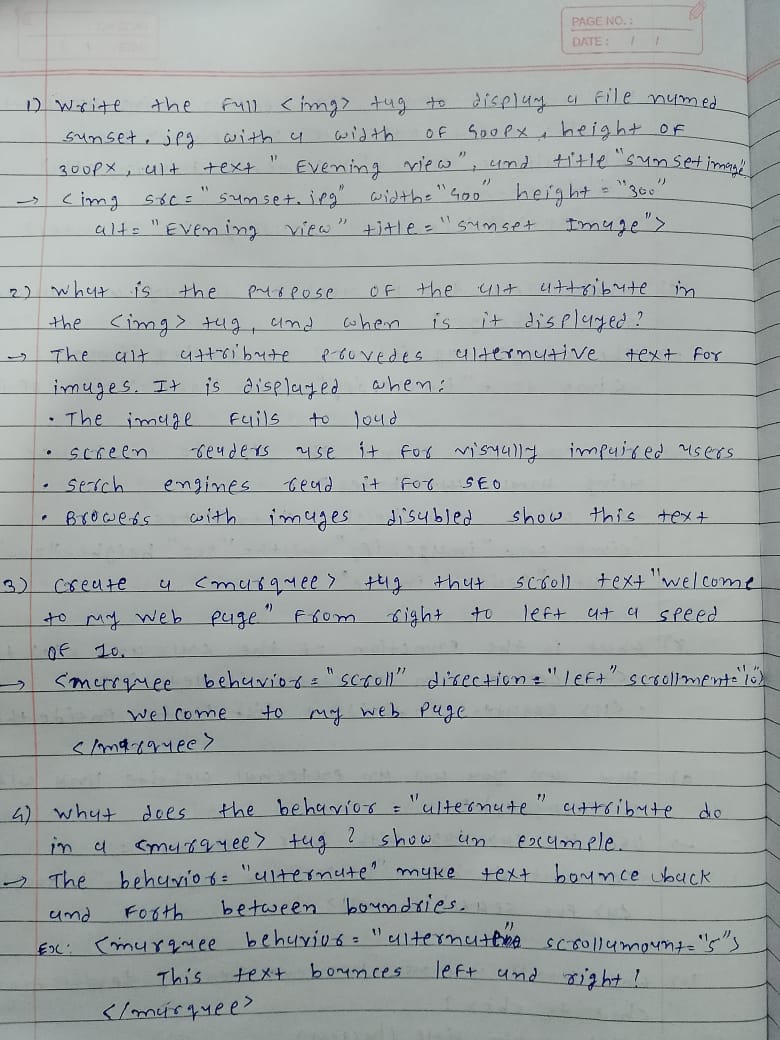 PAGE NO.:
DATE: / /
1) Write the full <img> tag to display a file named
sunset.jpg with a width of 400px, height of
300px, alt text "Evening view", and title "sunset image"
→ <img src="sunset.jpg" width="400" height="300"
alt="Evening view" title="sunset Image">
2) What is the purpose of the alt attribute in
the <img> tag, and when is it displayed?
→ The alt attribute provedes alternative text for
images. It is displayed when:
• The image fails to load
• screen readers use it for visually impaired users
• serch engines read it for SEO
• Browers with images disabled show this text
3) Create a <marquee> tag that scroll text "welcome
to my web page" from right to left at a speed
of 10.
→ <marquee behavior="scroll" direction="left" scrollment="10">
Welcome to my web page
</marquee>
4) What does the behavior="alternate" attribute do
in a <marquee> tag? show an example.
→ The behavior="alternate" make text bounce back
and forth between boundries.
Ex: <marquee behavior="alternate" scrollamount="5">
This text bounces left and right!
</marquee>